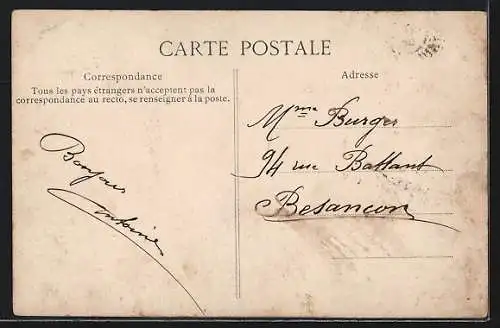 CARTE POSTALE
Correspondance
Tous les pays étrangers n'acceptent pas la
correspondance au recto, se renseigner à la poste.
Bonjour
Antoine
Adresse
Mme Burger
94 rue Battant
Besançon